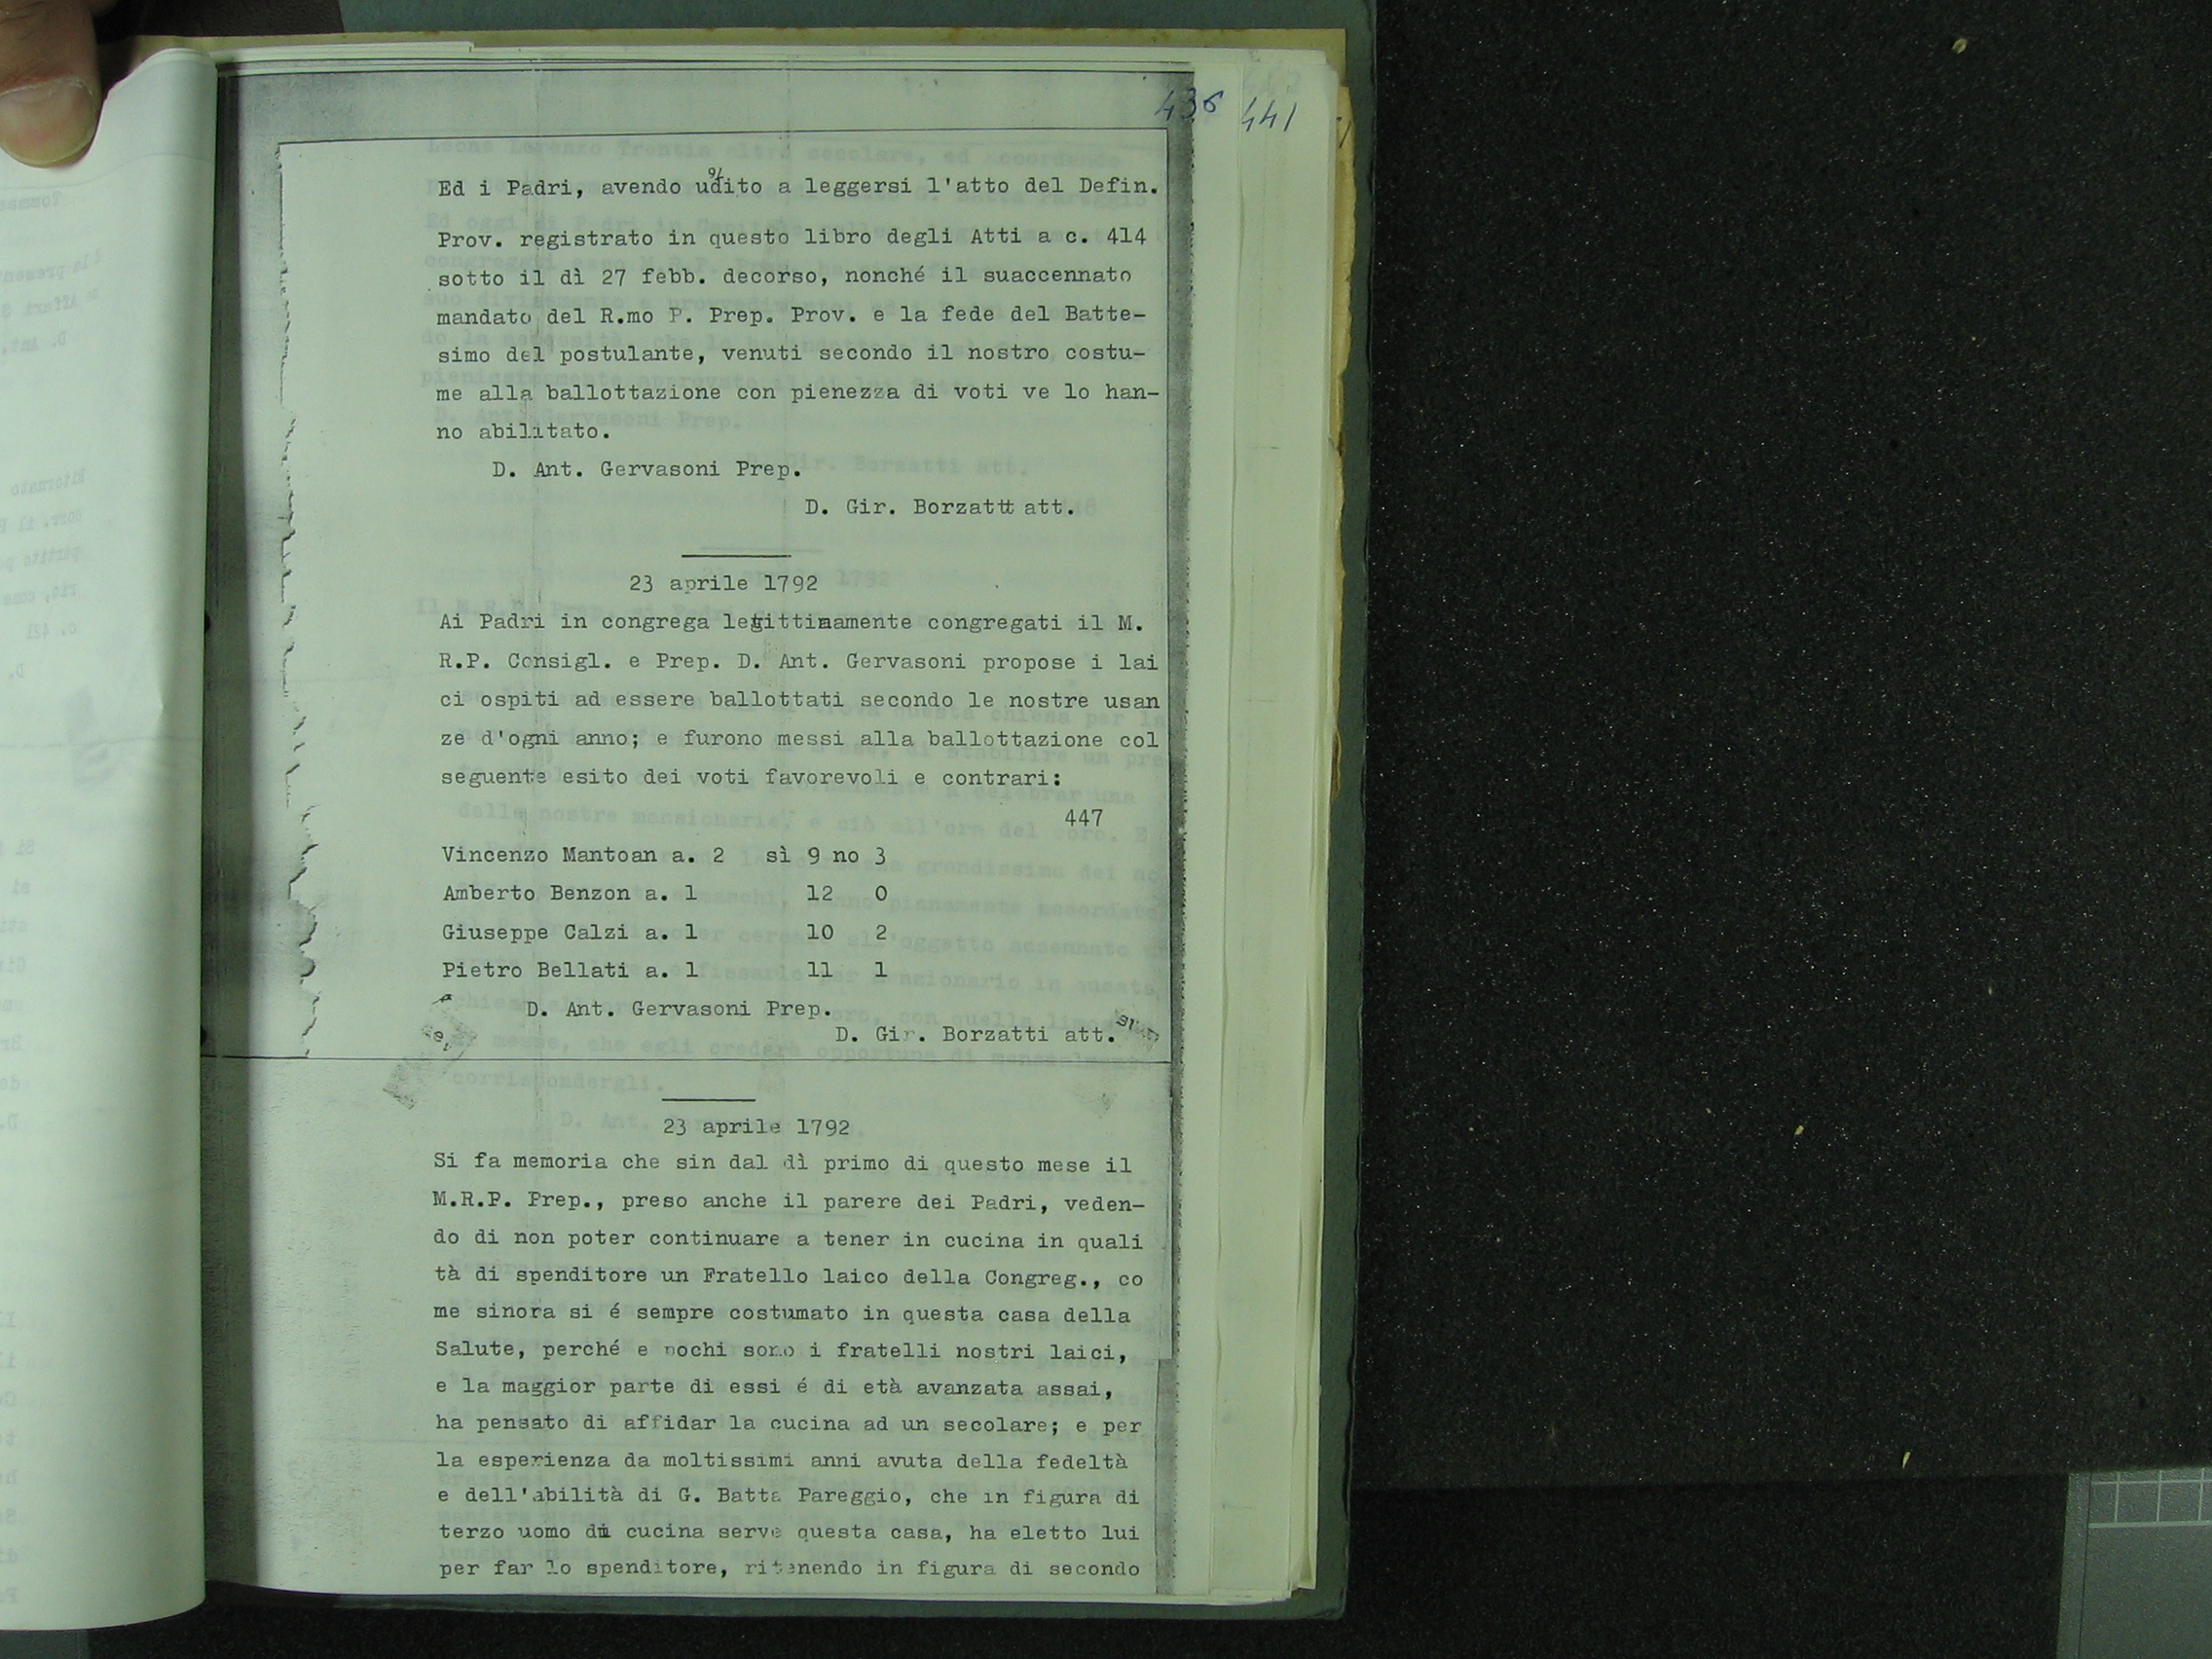 436 441
Ed i Padri, avendo udito a leggersi l'atto del Defin.
Prov. registrato in questo libro degli Atti a c. 414
sotto il dì 27 febb. decorso, nonché il suaccennato
mandato del R.mo P. Prep. Prov. e la fede del Batte-
simo del postulante, venuti secondo il nostro costu-
me alla ballottazione con pienezza di voti ve lo han-
no abilitato.
D. Ant. Gervasoni Prep.
D. Gir. Borzatti att.
23 aprile 1792
Ai Padri in congrega legittimamente congregati il M.
R.P. Consigl. e Prep. D. Ant. Gervasoni propose i lai
ci ospiti ad essere ballottati secondo le nostre usan
ze d'ogni anno; e furono messi alla ballottazione col
seguente esito dei voti favorevoli e contrari:
447
Vincenzo Mantoan a. 2 sì 9 no 3
Amberto Benzon a. 1 12 0
Giuseppe Calzi a. 1 10 2
Pietro Bellati a. 1 11 1
D. Ant. Gervasoni Prep.
D. Gir. Borzatti att.
23 aprile 1792
Si fa memoria che sin dal dì primo di questo mese il
M.R.P. Prep., preso anche il parere dei Padri, veden-
do di non poter continuare a tener in cucina in quali
tà di spenditore un Fratello laico della Congreg., co
me sinora si é sempre costumato in questa casa della
Salute, perché e pochi sono i fratelli nostri laici,
e la maggior parte di essi é di età avanzata assai,
ha pensato di affidar la cucina ad un secolare; e per
la esperienza da moltissimi anni avuta della fedeltà
e dell'abilità di G. Batta Pareggio, che in figura di
terzo uomo di cucina serve questa casa, ha eletto lui
per far lo spenditore, ritenendo in figura di secondo